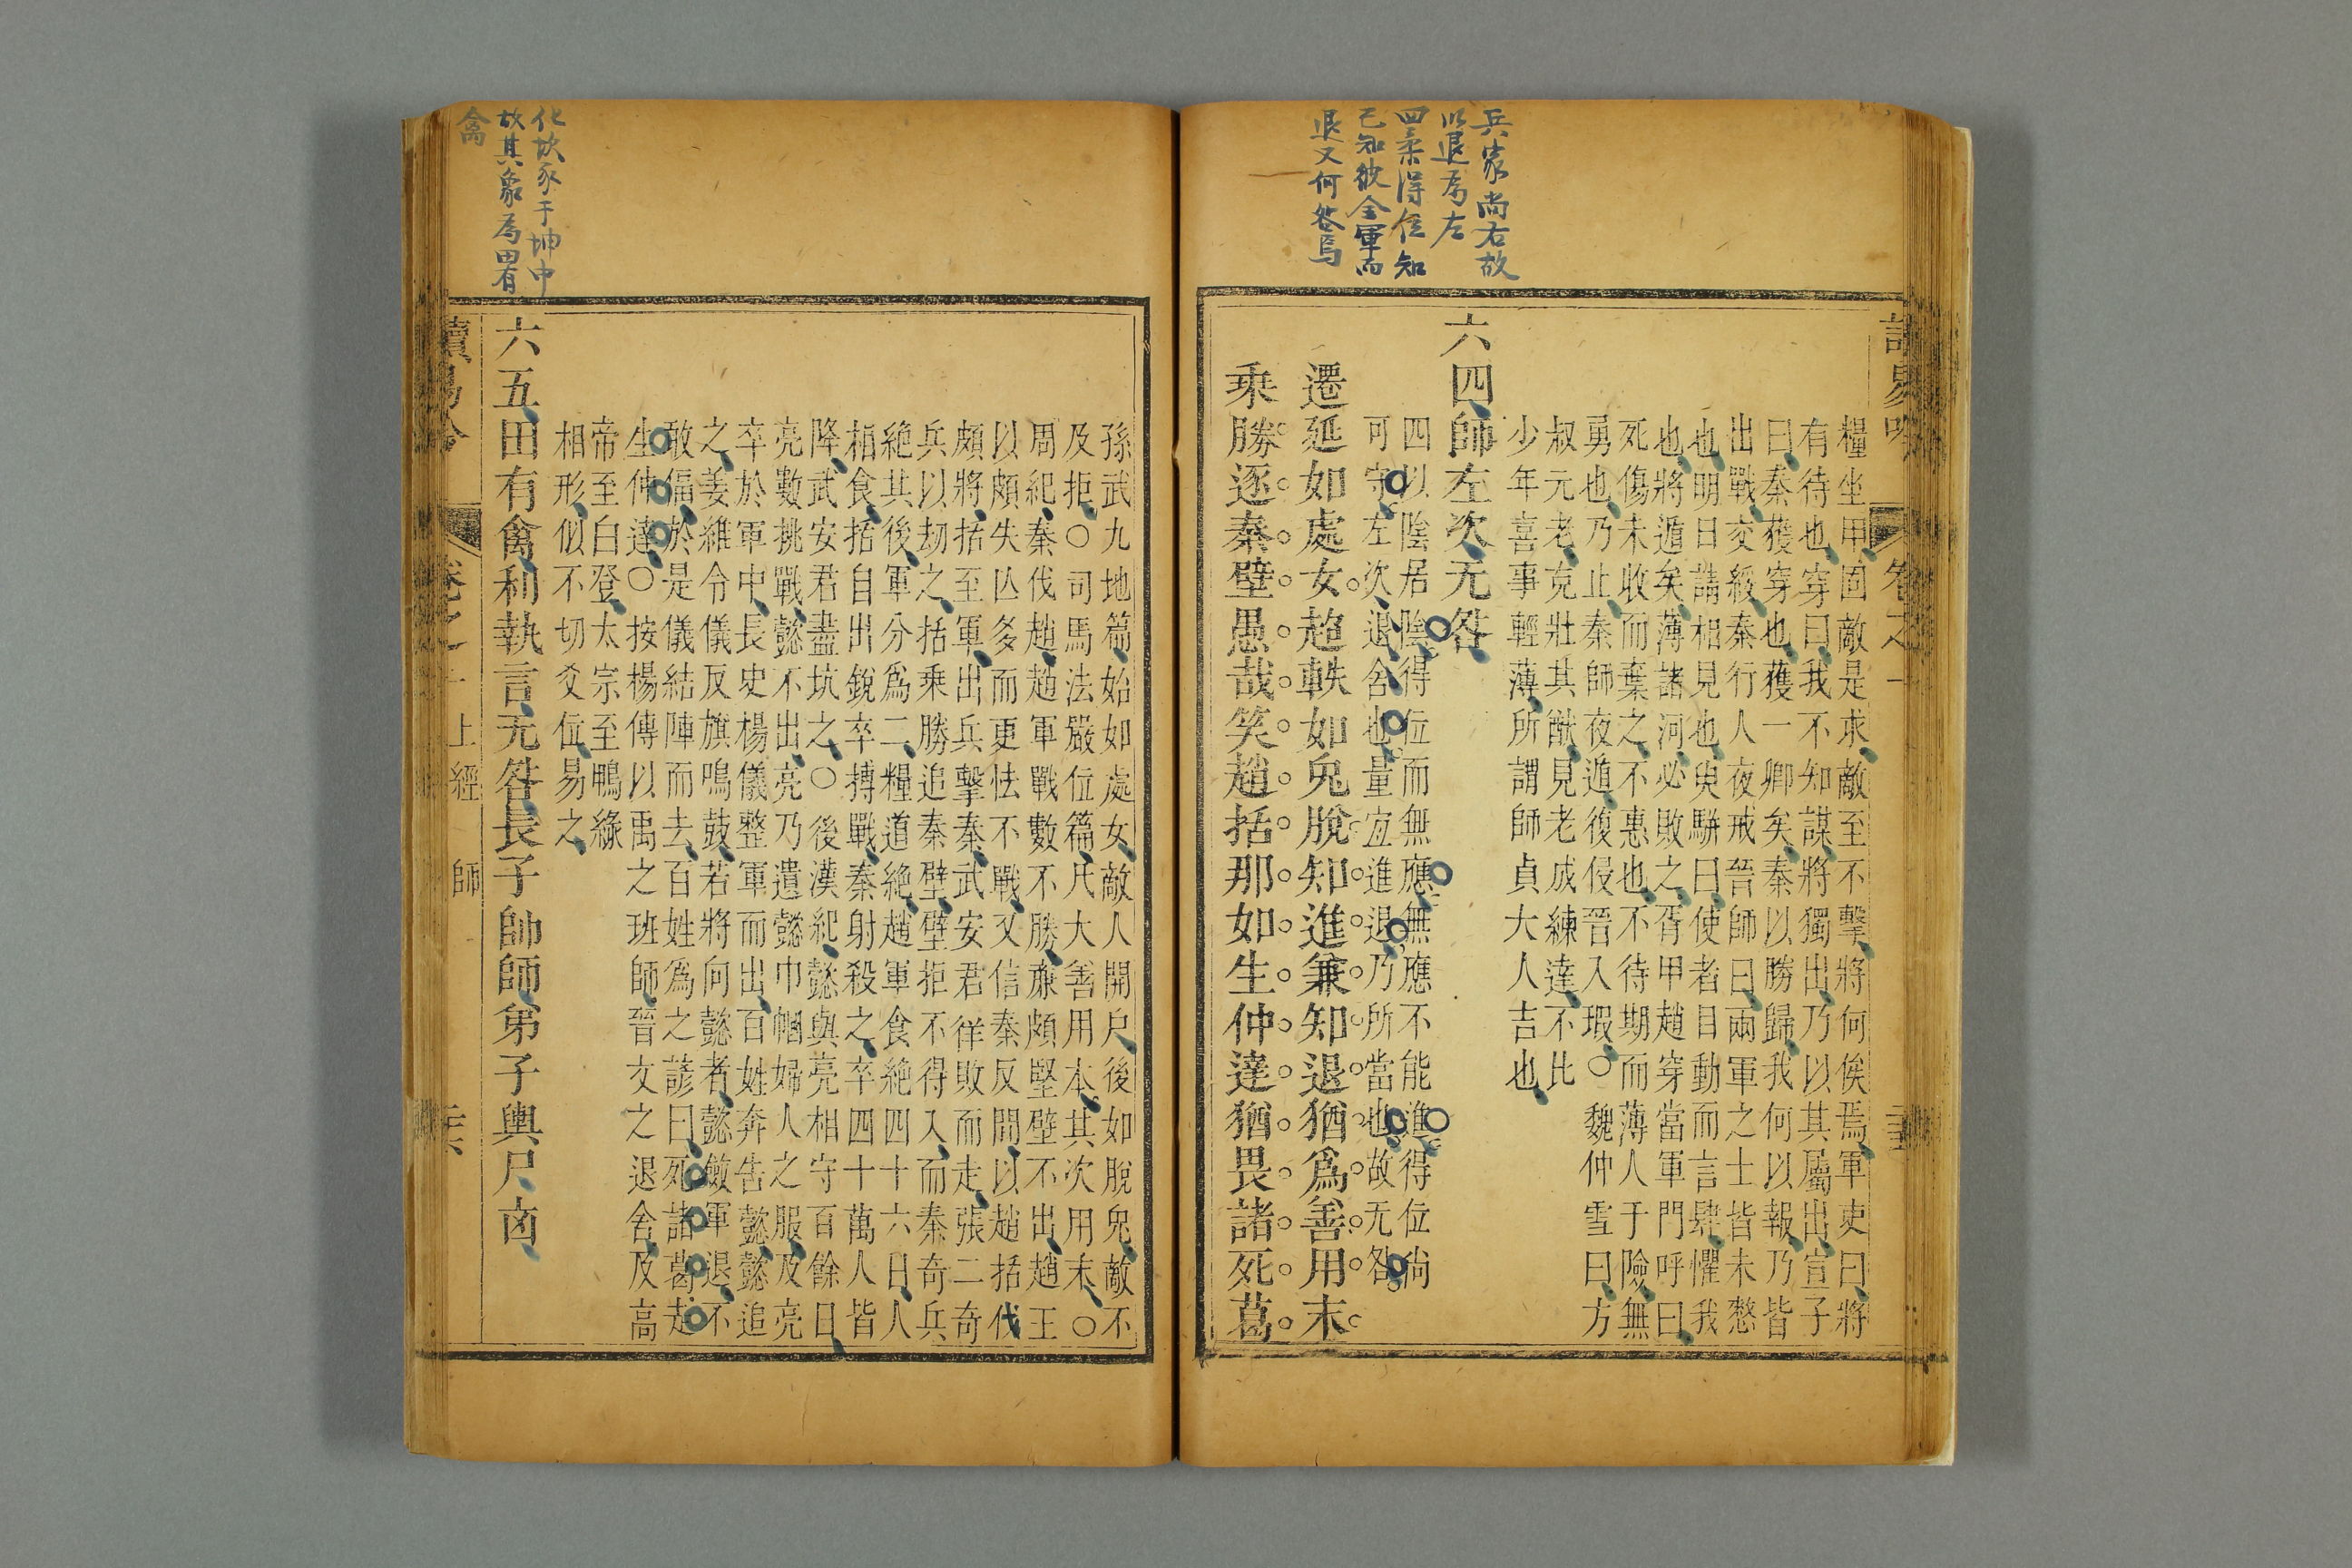 兵家尚右故
以退爲左
四柔得位知
己知彼全軍而
退又何咎焉
糧坐甲固敵是求敵至不擊將何俟焉軍吏曰將
有待也穿曰我不知謀將獨出乃以其屬出宣子
曰秦獲穿也獲一卿矣秦以勝歸我何以報乃皆
出戰交綏秦行人夜戒晉師曰兩軍之士皆未憗
也明日請相見也臾駢曰使者目動而言肆懼我
也將遁矣薄諸河必敗之胥甲趙穿當軍門呼曰
死傷未收而棄之不惠也不待期而薄人于險無
勇也乃止秦師夜遁復侵晉入瑕○魏仲雪曰方
叔元老克壯其猷見老成練達不比
少年喜事輕薄所謂師貞大人吉也
六四師左次无咎
四以陰居陰得位而無應無應不能進得位尙
可守左次退舍也量宜進退乃所當也故无咎
遷延如處女超軼如兔脫知進兼知退猶爲善用末
乘勝逐秦壁愚哉笑趙括那如生仲達猶畏諸死葛
化坎豕于坤中
故其象爲田有
禽
孫武九地篇始如處女敵人開戶後如脫兔敵不
及拒○司馬法嚴位篇凡大善用本其次用末○
周紀秦伐趙趙軍戰數不勝廉頗堅壁不出趙王
以頗失亾多而更怯不戰又信秦反間以趙括代
頗將括至軍出兵擊秦武安君佯敗而走張二奇
兵以劫之括乘勝追秦壁壁拒不得入而秦奇兵
絕其後軍分爲二糧道絕趙軍食絕四十六日人
相食括自出銳卒搏戰秦射殺之卒四十萬人皆
降武安君盡坑之○後漢紀懿與亮相守百餘日
亮數挑戰懿不出亮乃遺懿巾幗婦人之服及亮
卒於軍中長史楊儀整軍而出百姓奔告懿懿追
之姜維令儀反旗鳴鼓若將向懿者懿斂軍退不
敢偪於是儀結陣而去百姓爲之諺曰死諸葛走
生仲達○按楊傳以禹之班師晉文之退舍及高
帝至白登太宗至鴨綠
相形似不切爻位易之
六五田有禽利執言无咎長子帥師弟子輿尸凶
上經 師